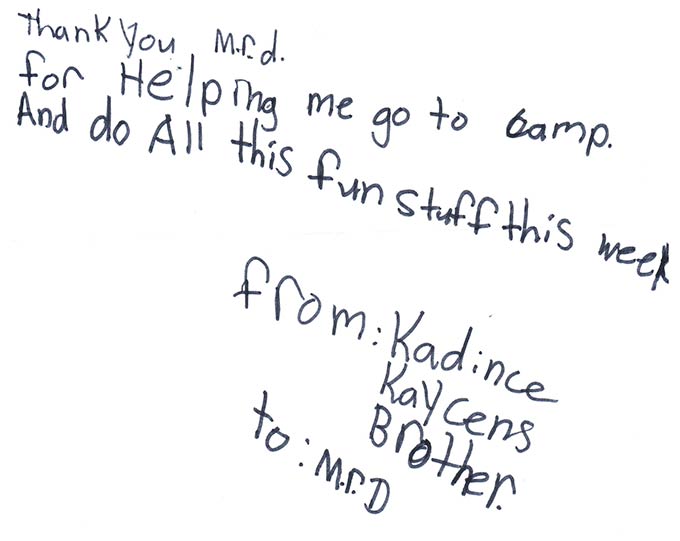 Thank You M.r.d.
for Helping me go to camp.
And do All this fun stuff this week
from: Kadince
Kaycens
Brother.
to: M.r.D